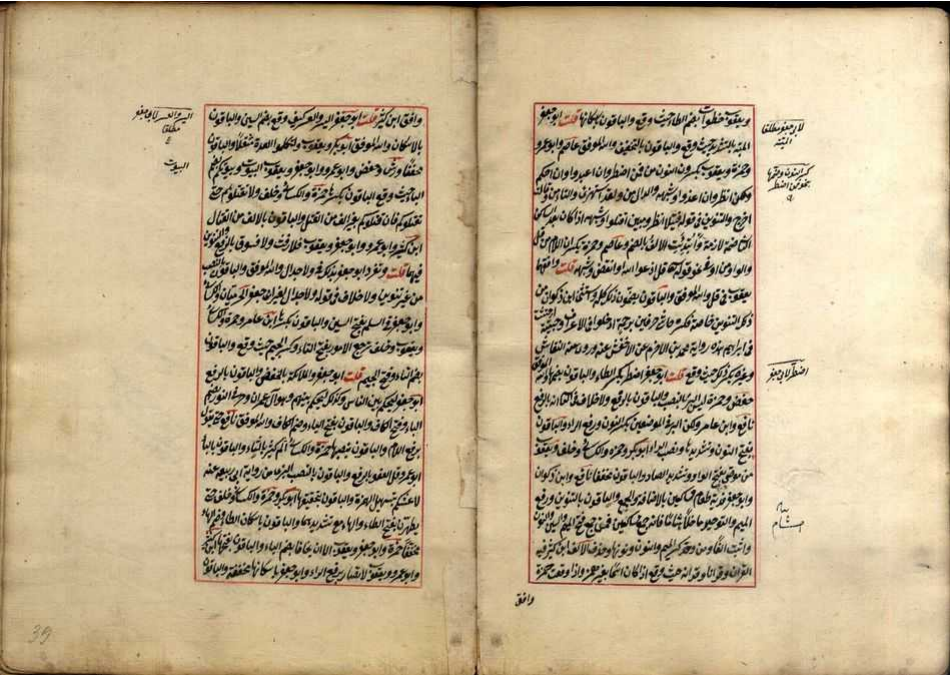 ويعقوب خطوات بضم الطا حيث وقع والباقون باسكانها قلت ابو جعفر
الميتة بالتشديد حيث وقع والباقون بالتخفيف والله الموفق عاصم وابو عمرو
وحمزة ويعقوب بكسرون النون من فمن اضطر وان اعبدوا وان احكم
ولكن انظر وان اغدوا وشبهه والدال من ولقد استهزئ والتا من وقالت
اخرج والتنوين في قوله فتيلا انظر ومبين اقتلوا وشبهه اذا كان بعد الساكن
الثا ضمة لازمة وابتدئت الالف بالضم وعاصم وحمزة بكسران اللام من قل
والواو من او في نحو قوله قل ادعوا الله او انقص وشبهه قلت وافقهما
يعقوب في قل والله الموفق والباقون يضمون ذلك كله واستثنى ابن ذكوان من
ذكر التنوين خاصة فكسره حاشا حرفين برحمة ادخلوا في الاعراف وخبيثة اجتثت
في ابراهيم هذه رواية محمد بن الاخرم عن الاخفش عنه وروى عنه النقاش
وغيره بكسر ذلك حيث وقع قلت ابو جعفر اضطر بكسر الطاء والباقون بضمها والله الموفق
حفص وحمزة ليس البر بالنصب والباقون بالرفع ولا خلاف في الثاني انه بالرفع
نافع وابن عامر ولكن البر في الموضعين بكسر النون ورفع الراء والباقون
بفتح النون وتشديدها ونصب الراء ابو بكر وحمزة والكسائي وخلف ويعقوب
من موص بفتح الواو وتشديد الصاد والباقون مخففا نافع وابن ذكوان
وابو جعفر فدية طعام مساكين بالاضافة والجمع والباقون بالتنوين ورفع
الميم والتوحيد ما خلا هشاما فانه جمع مساكين فمن جمع فتح الميم والسين والنون
واثبت الفا ومن وحد كسر الميم والنون ونونها وحذف الالف ابن كثير فيه
القران وقرانا وقرانه حيث وقع اذا كان اسما بغير همز واذا وقف حمزة
وافق
لابي جعفر مطلقا
الميتة
كسر النون وضمها
نحو فمن اضطر
اضطر لابي جعفر
هشام
وافق ابن كثير قلت ابو جعفر اليسر والعسر كيف وقع بضم السين والباقون
بالاسكان والله الموفق ابو بكر ويعقوب ولتكملوا العدة مثقلا والباقون
مخففا ورش وحفص وابو عمرو وابو جعفر ويعقوب البيوت وبيوتكم بضم
الباء حيث وقع والباقون بكسرها حمزة والكسائي وخلف ولا تقتلوهم حتى
يقتلوكم فان قتلوكم بغير الف من القتل والباقون بالالف من القتال
ابن كثير وابو عمرو وابو جعفر ويعقوب فلا رفث ولا فسوق بالرفع والتنوين
فيهما قلت وتفرد ابو جعفر بذلك في ولا جدال والله الموفق والباقون بالنصب
من غير تنوين ولا خلاف في قوله ولا جدال لغير ابي جعفر الحرميان والكسائي
وابو جعفر في السلم بفتح السين والباقون بكسرها ابن عامر وحمزة والكسائي
ويعقوب وخلف ترجع الامور بفتح التاء وكسر الجيم حيث وقع والباقون
بضم التاء وفتح الجيم قلت ابو جعفر والملائكة بالخفض والباقون بالرفع
ابو جعفر ليحكم بين الناس وكذلك ليحكم بينهم وهو في ال عمران وحرفي النور بضم
الياء وفتح الكاف والباقون بفتح الياء وضم الكاف والله الموفق نافع حتى يقول
برفع اللام والباقون بنصبها حمزة والكسائي اثم كثير بالثاء والباقون بالباء
ابو عمرو قل العفو بالرفع والباقون بالنصب البزي من رواية ابي ربيعة عنه
لاعنتكم بتسهيل الهمزة والباقون بتحقيقها ابو بكر وحمزة والكسائي وخلف حتى
يطهرن بفتح الطاء والهاء مع تشديدهما والباقون باسكان الطاء وضم الهاء
مخففا حمزة وابو جعفر ويعقوب الا ان يخافا بضم الياء والباقون بفتحها ابن كثير
وابو عمرو ويعقوب لا تضار برفع الراء وابو جعفر باسكانها مخففة والباقون
اليسر والعسر لابي جعفر
مطلقا
البيوت
39